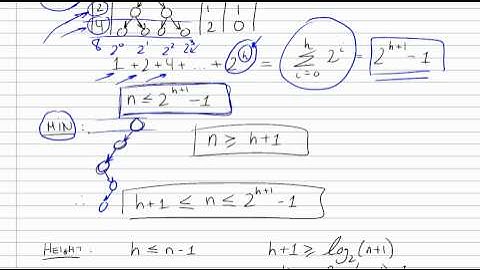 2 1 1
4 2 0
8 2⁰ 2¹ 2² 2³
1 + 2 + 4 + ... + 2^h = ∑_{i=0}^{h} 2^i = 2^{h+1} - 1
n ≤ 2^{h+1} - 1
MIN:
n ≥ h+1
∴ h+1 ≤ n ≤ 2^{h+1} - 1
HEIGHT: h ≤ n-1 h+1 ≥ log₂(n+1)